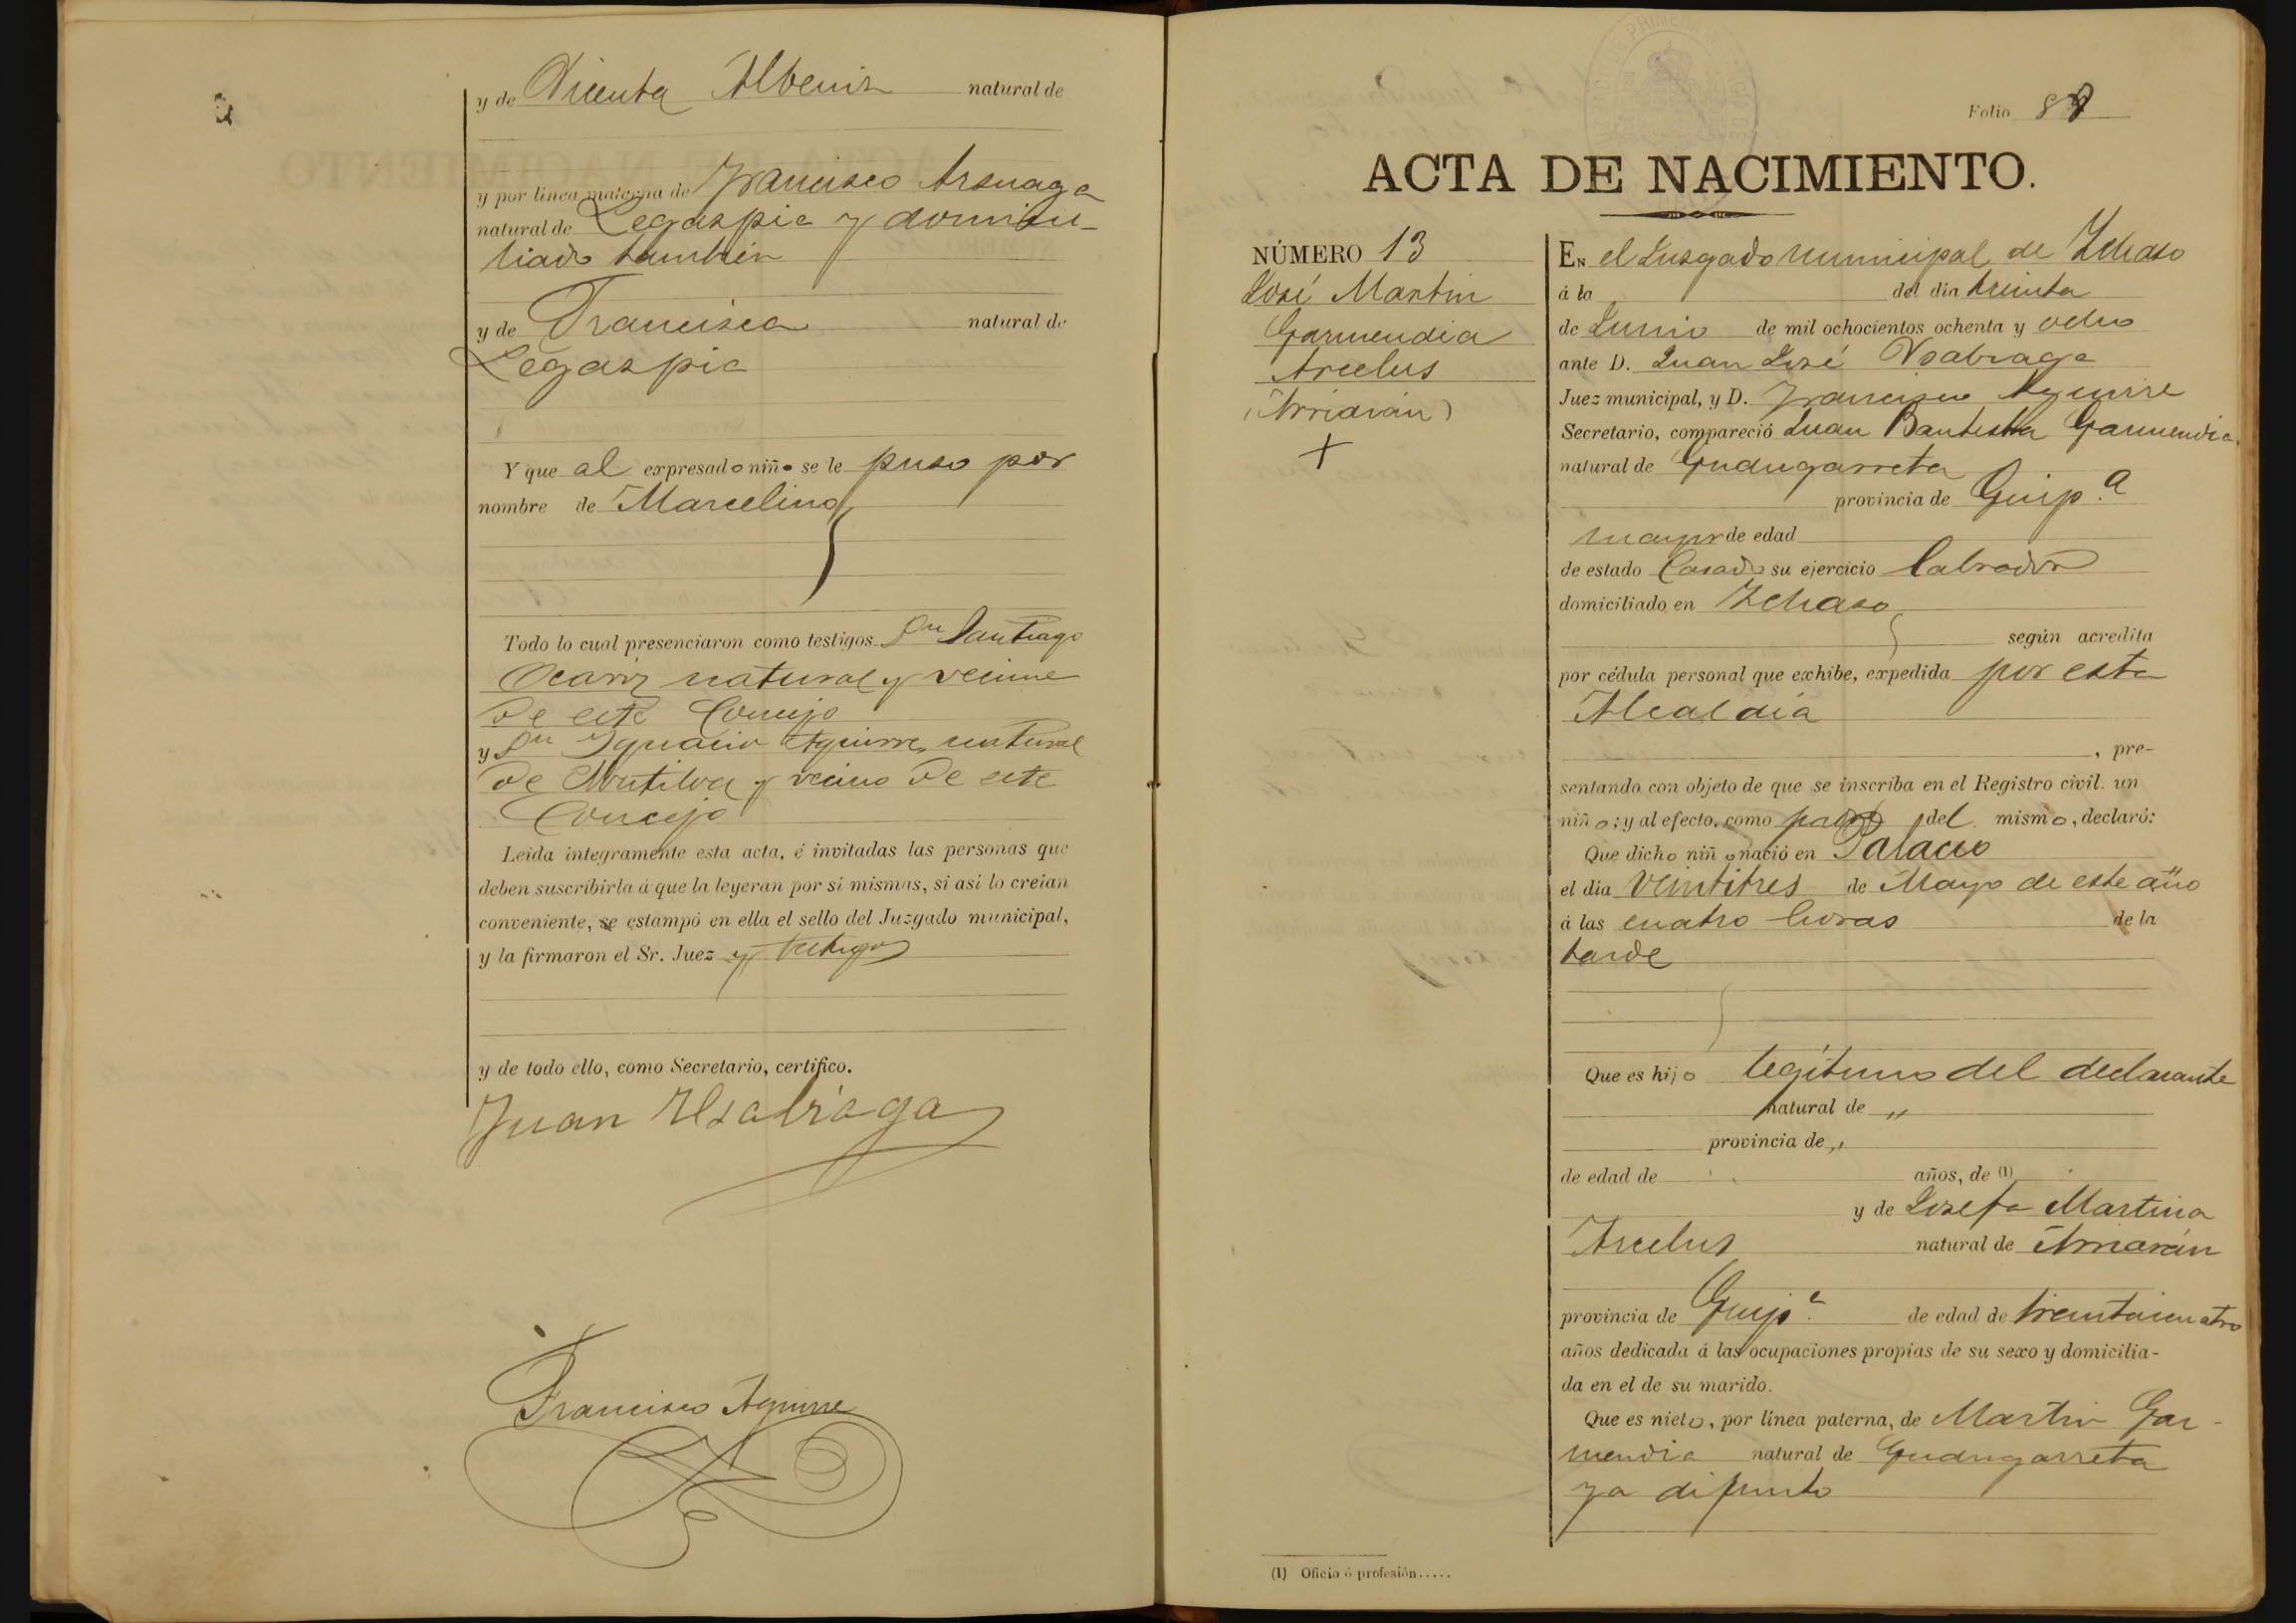 y de Vicenta Albeniz natural de
y por línea materna de Francisco Arsuaga
natural de Legazpia y domici-
liado también
y de Francisca natural de
Legazpia
Y que al expresado niño se le puso por
nombre de Marcelino
Todo lo cual presenciaron como testigos Dn Santiago
Ocariz natural y vecino
de este Concejo
y Dn Ignacio Aguirre natural
de Mutiloa y vecino de este
Concejo
Leída íntegramente esta acta, é invitadas las personas que
deben suscribirla á que la leyeran por sí mismas, si así lo creían
conveniente, se estampó en ella el sello del Juzgado municipal,
y la firmaron el Sr. Juez y testigos
y de todo ello, como Secretario, certifico.
Juan Usabiaga
Francisco Aguirre
Folio 8
ACTA DE NACIMIENTO.
NÚMERO 13
José Martin
Garmendia
Arcelus
(Arriarán)
EN el Juzgado municipal de Ichaso
á la del día treinta
de Junio de mil ochocientos ochenta y ocho
ante D. Juan José Usabiaga
Juez municipal, y D. Francisco Aguirre
Secretario, compareció Juan Bautista Garmendia
natural de Gudugarreta
provincia de Guip.a
mayor de edad
de estado Casado su ejercicio labrador
domiciliado en Ichaso
según acredita
por cédula personal que exhibe, expedida por esta
Alcaldía
, pre-
sentando con objeto de que se inscriba en el Registro civil un
niño; y al efecto, como padre del mismo, declaró:
Que dicho niño nació en Palacio
el día veintitres de Mayo de este año
á las cuatro horas de la
tarde
Que es hijo legítimo del declarante
natural de „
provincia de „
de edad de años, de (1)
y de Josefa Martina
Arcelus natural de Arriarán
provincia de Guip.a de edad de treintaicuatro
años dedicada á las ocupaciones propias de su sexo y domicilia-
da en el de su marido.
Que es nieto, por línea paterna, de Martin Gar-
mendia natural de Gudugarreta
ya difunto
(1) Oficio ó profesión.....